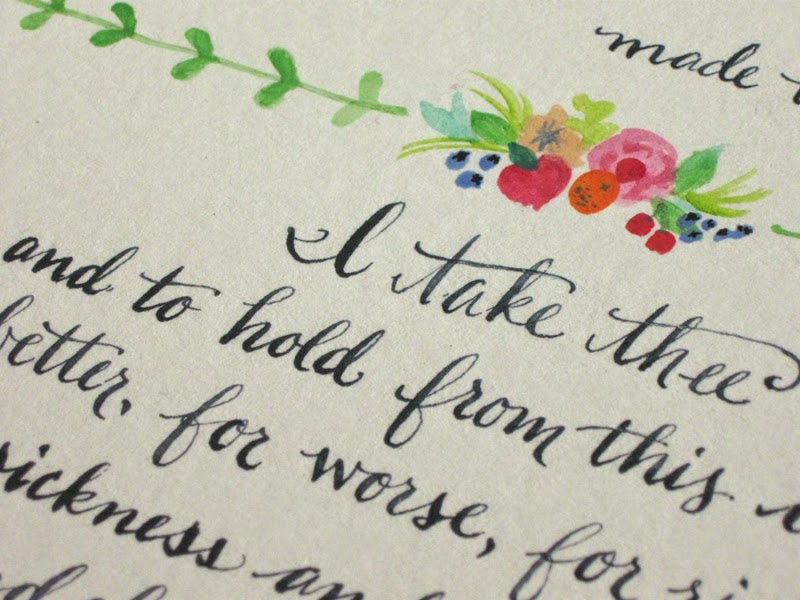 made
I take thee
and to hold from this
better, for worse, for
sickness